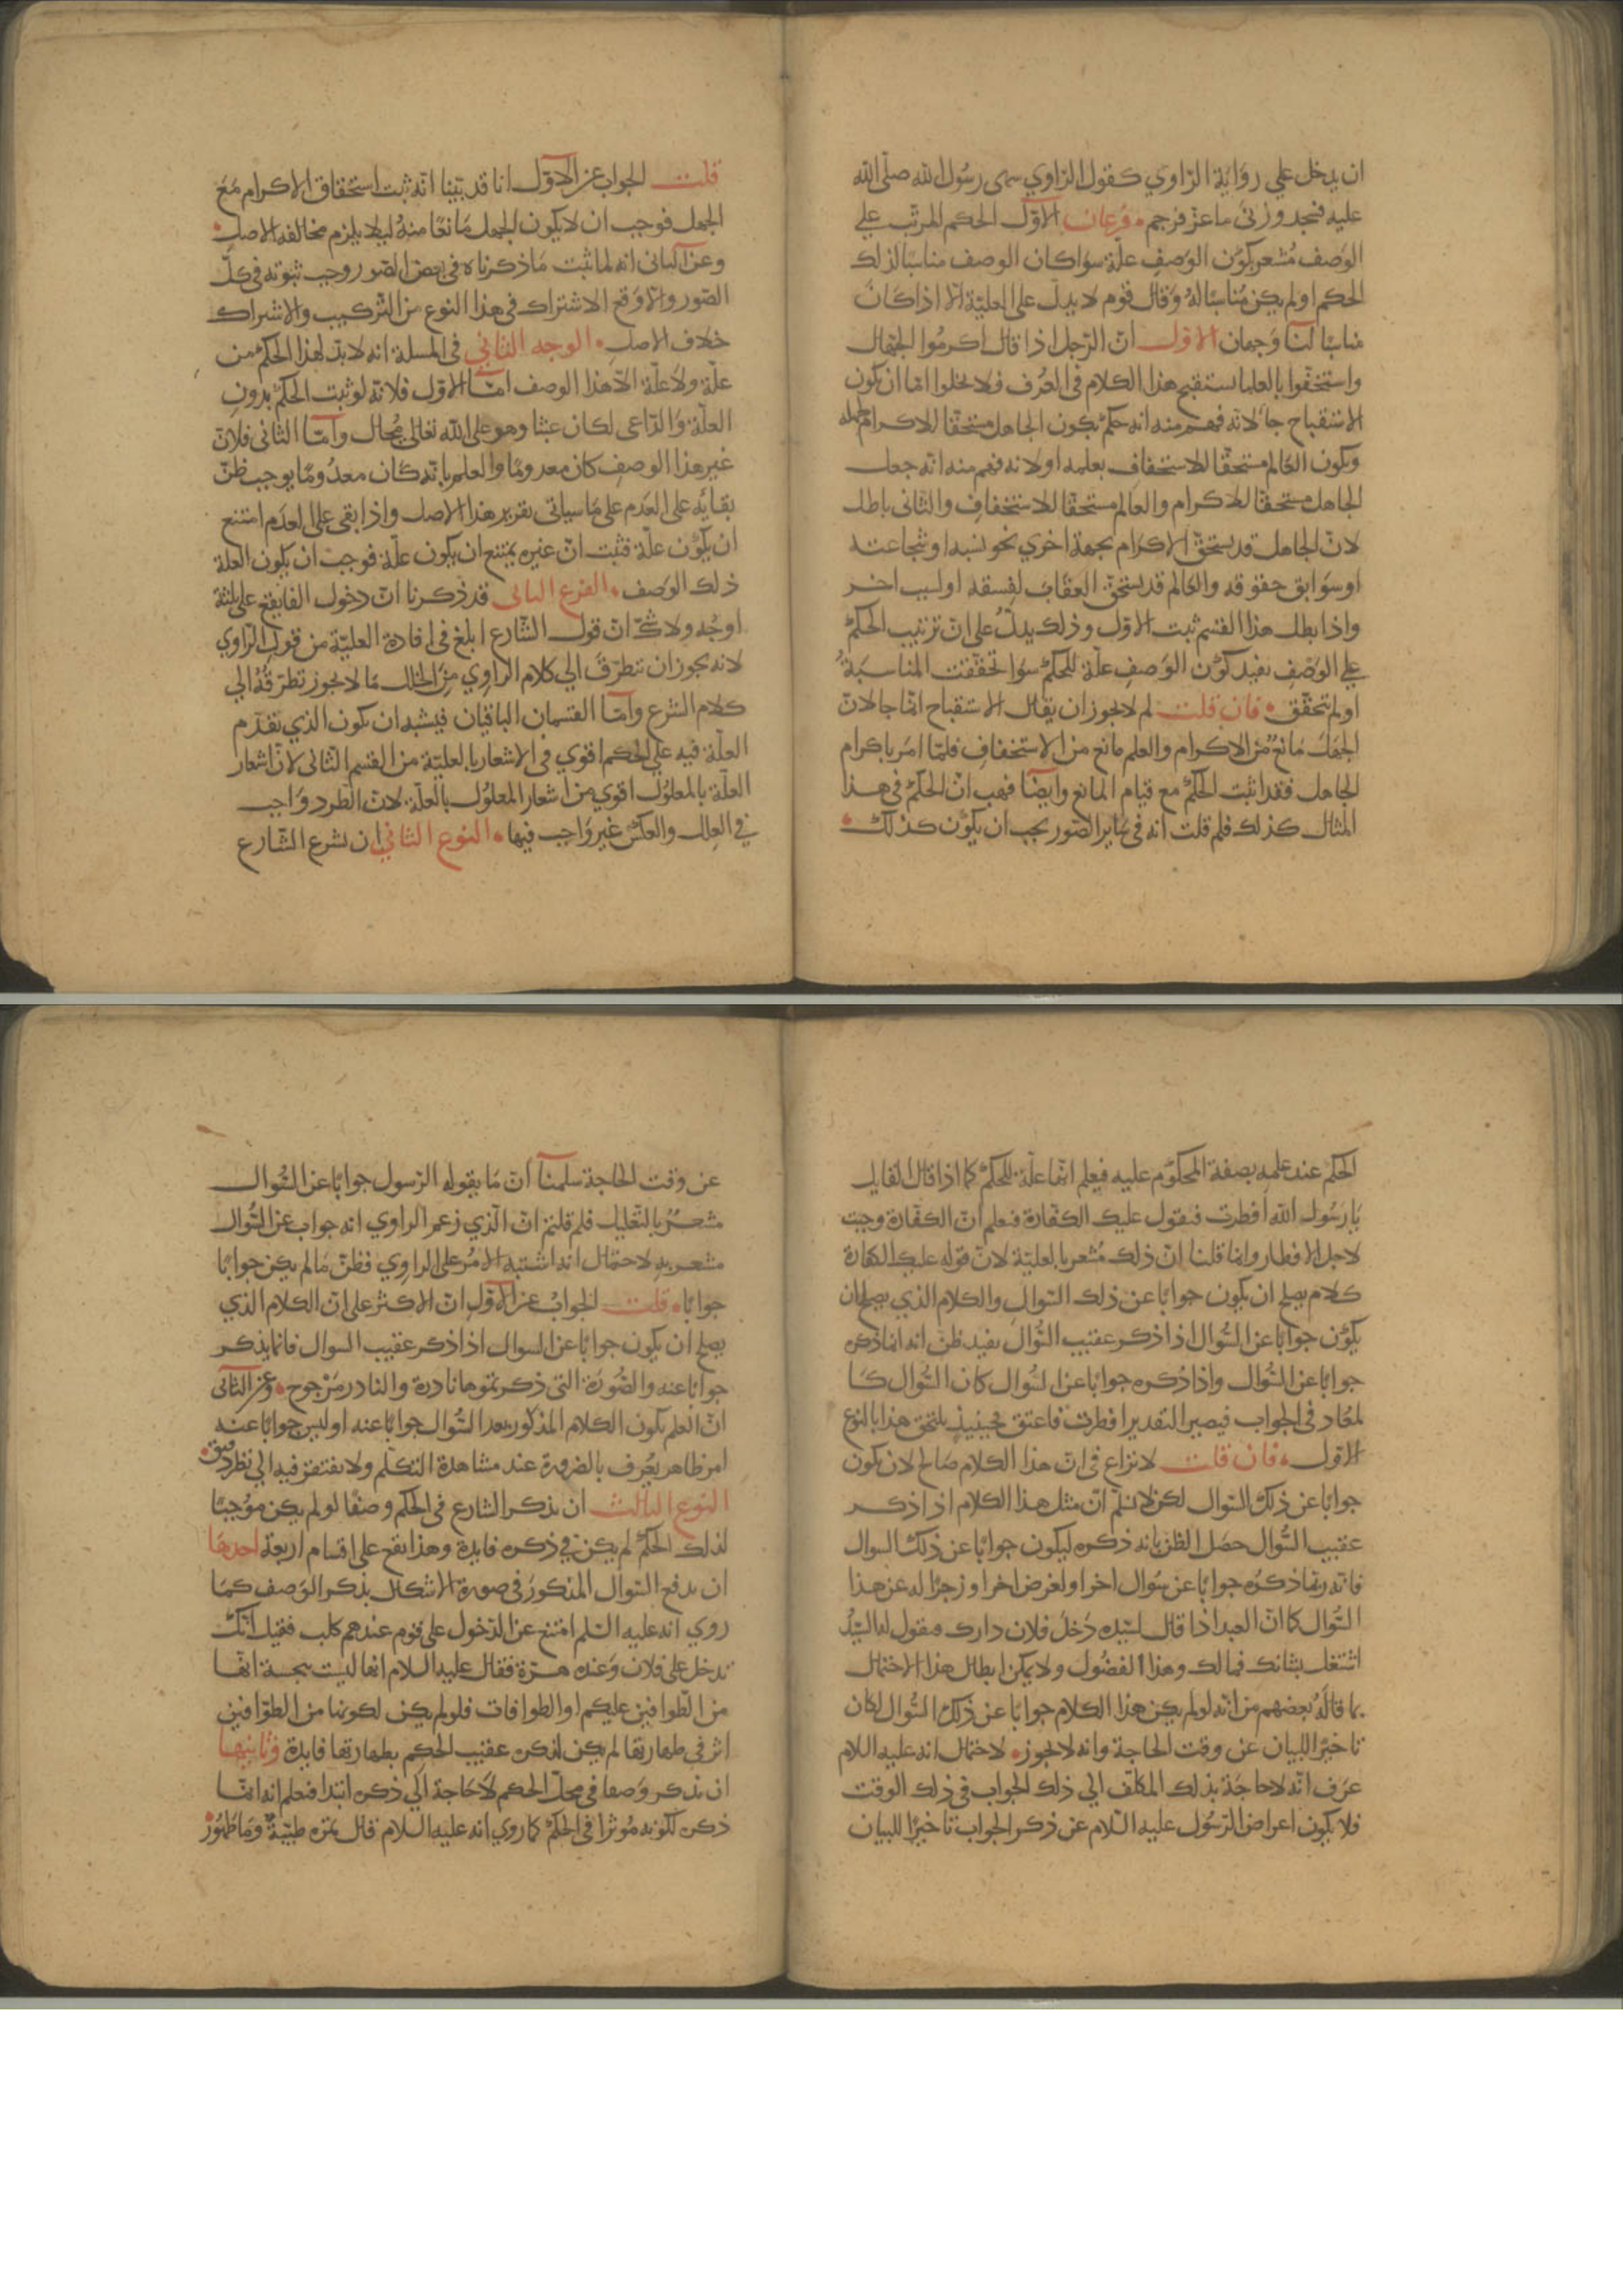 ان يدخل علي رواية الراوي كقول الراوي سهى رسول الله صلى الله
عليه فسجد وزنى ماعز فرجم فرعان الاول الحكم المرتب علي
الوصف مشعر بكون الوصف علة سوا كان الوصف مناسبا لذلك
الحكم او لم يكن مناسبا له وقال قوم لا يدل على العلية الا اذا كان
مناسبا لنا وجهان الاول ان الرجل اذا قال اكرموا الجهال
واستخفوا بالعلما يستقبح هذا الكلام في العرف فلا يخلوا اما ان يكون
الاستقباح جا لانه فهم منه انه حكم بكون الجاهل مستحقا للاكرام بجهله
وبكون العالم مستحقا للاستخفاف بعلمه او لانه فهم منه انه جعل
الجاهل مستحقا للاكرام والعالم مستحقا للاستخفاف والثاني باطل
لان الجاهل قد يستحق الاكرام بجهة اخري نحو نسبه او شجاعته
او سوابق حقوقه والعالم قد يستحق العقاب لفسقه او لسبب اخر
واذا بطل هذا القسم ثبت الاول وذلك يدل على ان ترتيب الحكم
علي الوصف يفيد كون الوصف علة للحكم سوا تحققت المناسبة
او لم تحقق فان قلت لم لا يجوز ان يقال الاستقباح انما جا لان
الجهل مانع من الاكرام والعلم مانع من الاستخفاف فلما امر باكرام
الجاهل فقد اثبت الحكم مع قيام المانع وايضا فهب ان الحكم في هذا
المثال كذلك فلم قلت انه في ساير الصور يجب ان يكون كذلك
قلت الجواب عن الاول انا قد بينا انه ثبت استحقاق الاكرام مع
الجهل فوجب ان لا يكون الجهل مانعا منه ليلا يلزم مخالفة الاصل
وعن الثاني انه لما ثبت ما ذكرناه في بعض الصور وجب ثبوته في كل
الصور والا وقع الاشتراك في هذا النوع من التركيب والاشتراك
خلاف الاصل الوجه الثاني في المسلة انه لا بد لهذا الحكم من
علة ولا علة الا هذا الوصف اما الاول فلانه لو ثبت الحكم بدون
العلة والداعي لكان عبثا وهو على الله تعالى محال واما الثاني فلان
غير هذا الوصف كان معدوما والعلم بانه كان معدوما يوجب ظن
بقايه على العدم على ما سياتي تقرير هذا الاصل واذا بقي على العدم امتنع
ان يكون علة فثبت ان غيره يمتنع ان يكون علة فوجب ان يكون العلة
ذلك الوصف الفرع الثاني قد ذكرنا ان دخول الفا يقع على ثلثة
اوجه ولا شك ان قول الشارع ابلغ في افادة العلية من قول الراوي
لانه يجوز ان تطرق الي كلام الراوي من الخلل ما لا يجوز تطرقه الي
كلام الشرع واما القسمان الباقيان فيشبه ان يكون الذي تقدم
العلة فيه علي الحكم اقوي في الاشعار بالعلية من القسم الثاني لان اشعار
العلة بالمعلول اقوي من اشعار المعلول بالعلة لان الطرد واجب
في العلل والعكس غير واجب فيها النوع الثاني ان يشرع الشارع
الحكم عند علمه بصفة المحكوم عليه فيعلم انها علة للحكم كما اذا قال القايل
يا رسول الله افطرت فيقول عليك الكفارة فيعلم ان الكفارة وجبت
لاجل الافطار وانما قلنا ان ذلك مشعر بالعلية لان قوله عليك الكفارة
كلام يصلح ان يكون جوابا عن ذلك السوال والكلام الذي يصلح ان
يكون جوابا عن السوال اذا ذكر عقيب السوال يفيد ظن انه انما ذكره
جوابا عن السوال واذا ذكره جوابا عن السوال كان السوال كا
لمعاد في الجواب فيصير التقدير افطرت فاعتق فحينيذ يلتحق هذا بالنوع
الاول فان قلت لا نزاع في ان هذا الكلام صالح لان يكون
جوابا عن ذلك السوال لكن لا نسلم ان مثل هذا الكلام اذا ذكر
عقيب السوال حصل الظن بانه ذكره ليكون جوابا عن ذلك السوال
فانه ربما ذكره جوابا عن سوال اخر او لغرض اخر او زجرا له عن هذا
السوال كما ان العبد اذا قال لسيده دخل فلان دارك فيقول له السيد
اشتغل بشانك فما لك وهذا الفضول ولا يمكن ابطال هذا الاحتمال
بما قاله بعضهم من انه لو لم يكن هذا الكلام جوابا عن ذلك السوال لكان
تاخيرا للبيان عن وقت الحاجة وانه لا يجوز لاحتمال انه عليه السلام
عرف انه لا حاجة بذلك المكلف الي ذلك الجواب في ذلك الوقت
فلا يكون اعراض الرسول عليه السلام عن ذكر الجواب تاخيرا للبيان
عن وقت الحاجة سلمنا ان ما يقوله الرسول جوابا عن السوال
مشعر بالتعليل فلم قلتم ان الذي زعم الراوي انه جواب عن السوال
مشعر به لاحتمال انه اشتبه الامر على الراوي فظن ما لم يكن جوابا
جوابا قلت الجواب عن الاول ان الاكثر على ان الكلام الذي
يصلح ان يكون جوابا عن السوال اذا ذكر عقيب السوال فانما يذكر
جوابا عنه والصورة التي ذكرتموها نادرة والنادر مرجوح وعن الثاني
ان العلم بكون الكلام المذكور بعد السوال جوابا عنه او ليس جوابا عنه
امر ظاهر يعرف بالضرورة عند مشاهدة التكلم ولا يفتقر فيه الي نظر دقيق
النوع الثالث ان يذكر الشارع في الحكم وصفا لو لم يكن موجبا
لذلك الحكم لم يكن في ذكره فايدة وهذا يقع على اقسام اربعة احدها
ان يدفع السوال المذكور في صورة الاشكال بذكر الوصف كما
روي انه عليه السلم امتنع عن الدخول على قوم عندهم كلب فقيل انك
تدخل على فلان وعنده هرة فقال عليه السلام انها ليست بنجسة انها
من الطوافين عليكم او الطوافات فلو لم يكن لكونها من الطوافين
اثر في طهارتها لم يكن لذكره عقيب الحكم بطهارتها فايدة وثانيها
ان يذكر وصفا في محل الحكم لا حاجة الي ذكره ابتدا فيعلم انه انما
ذكره لكونه موثرا في الحكم كما روي انه عليه السلام قال تمرة طيبة وما طهور